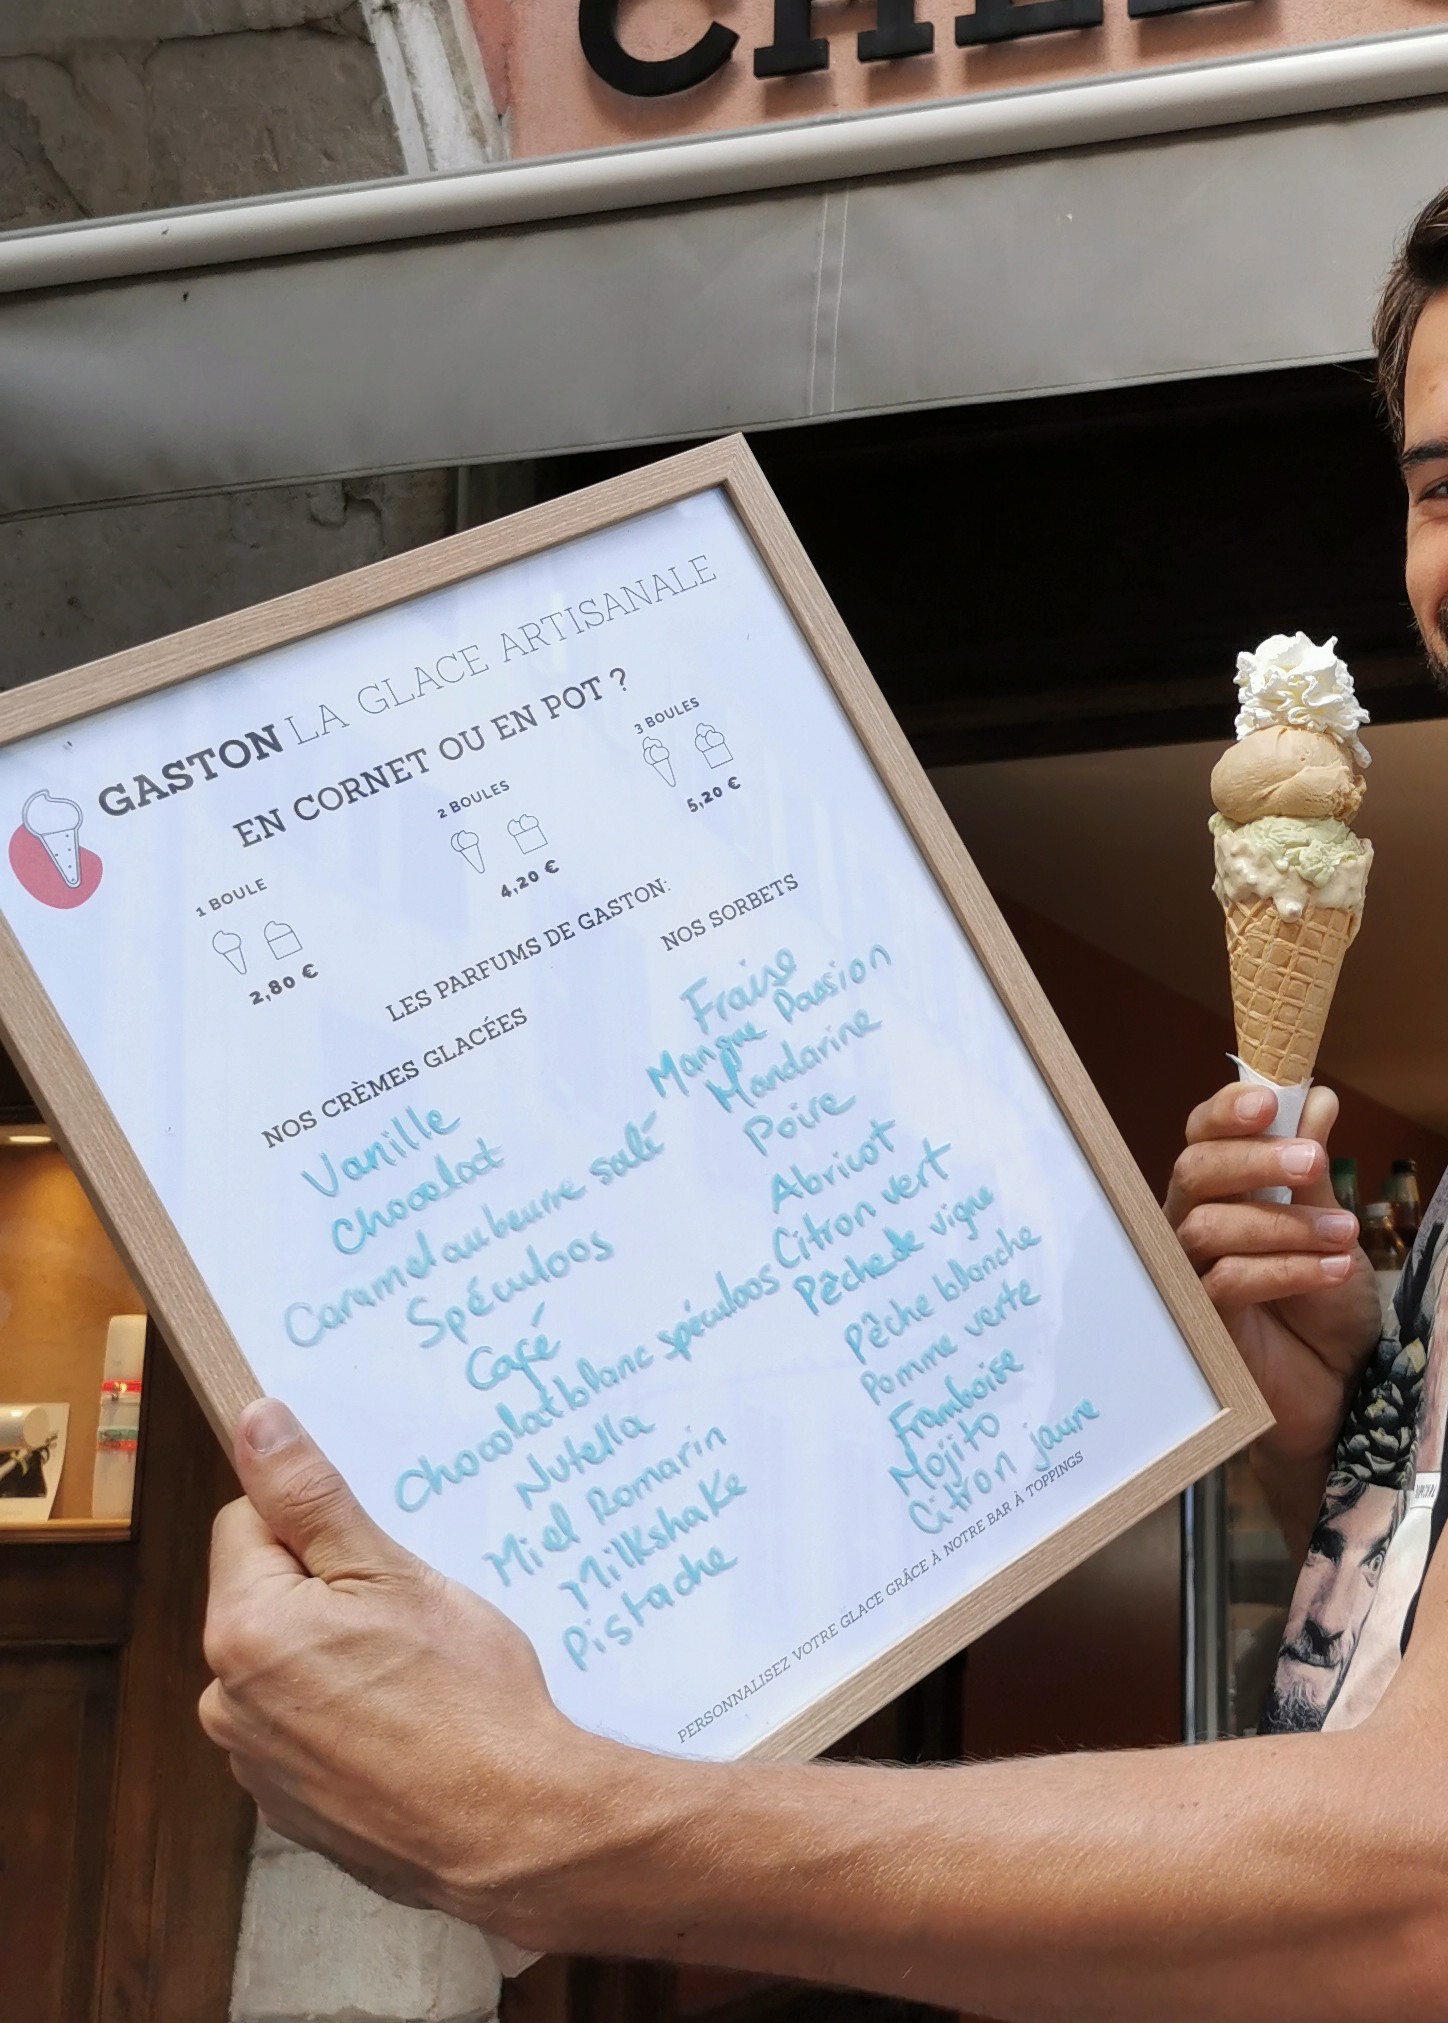 GASTON LA GLACE ARTISANALE
EN CORNET OU EN POT ?
1 BOULE
2,80 €
2 BOULES
4,20 €
3 BOULES
5,20 €
LES PARFUMS DE GASTON:
NOS CRÈMES GLACÉES
Vanille
Chocolat
Caramel au beurre salé
Spéculoos
Café
Chocolat blanc spéculoos
Nutella
Miel Romarin
Milkshake
Pistache
NOS SORBETS
Fraise
Mangue Passion
Mandarine
Poire
Abricot
Citron vert
Pêche de vigne
Pêche blanche
Pomme verte
Framboise
Mojito
Citron jaune
PERSONNALISEZ VOTRE GLACE GRÂCE À NOTRE BAR À TOPPINGS